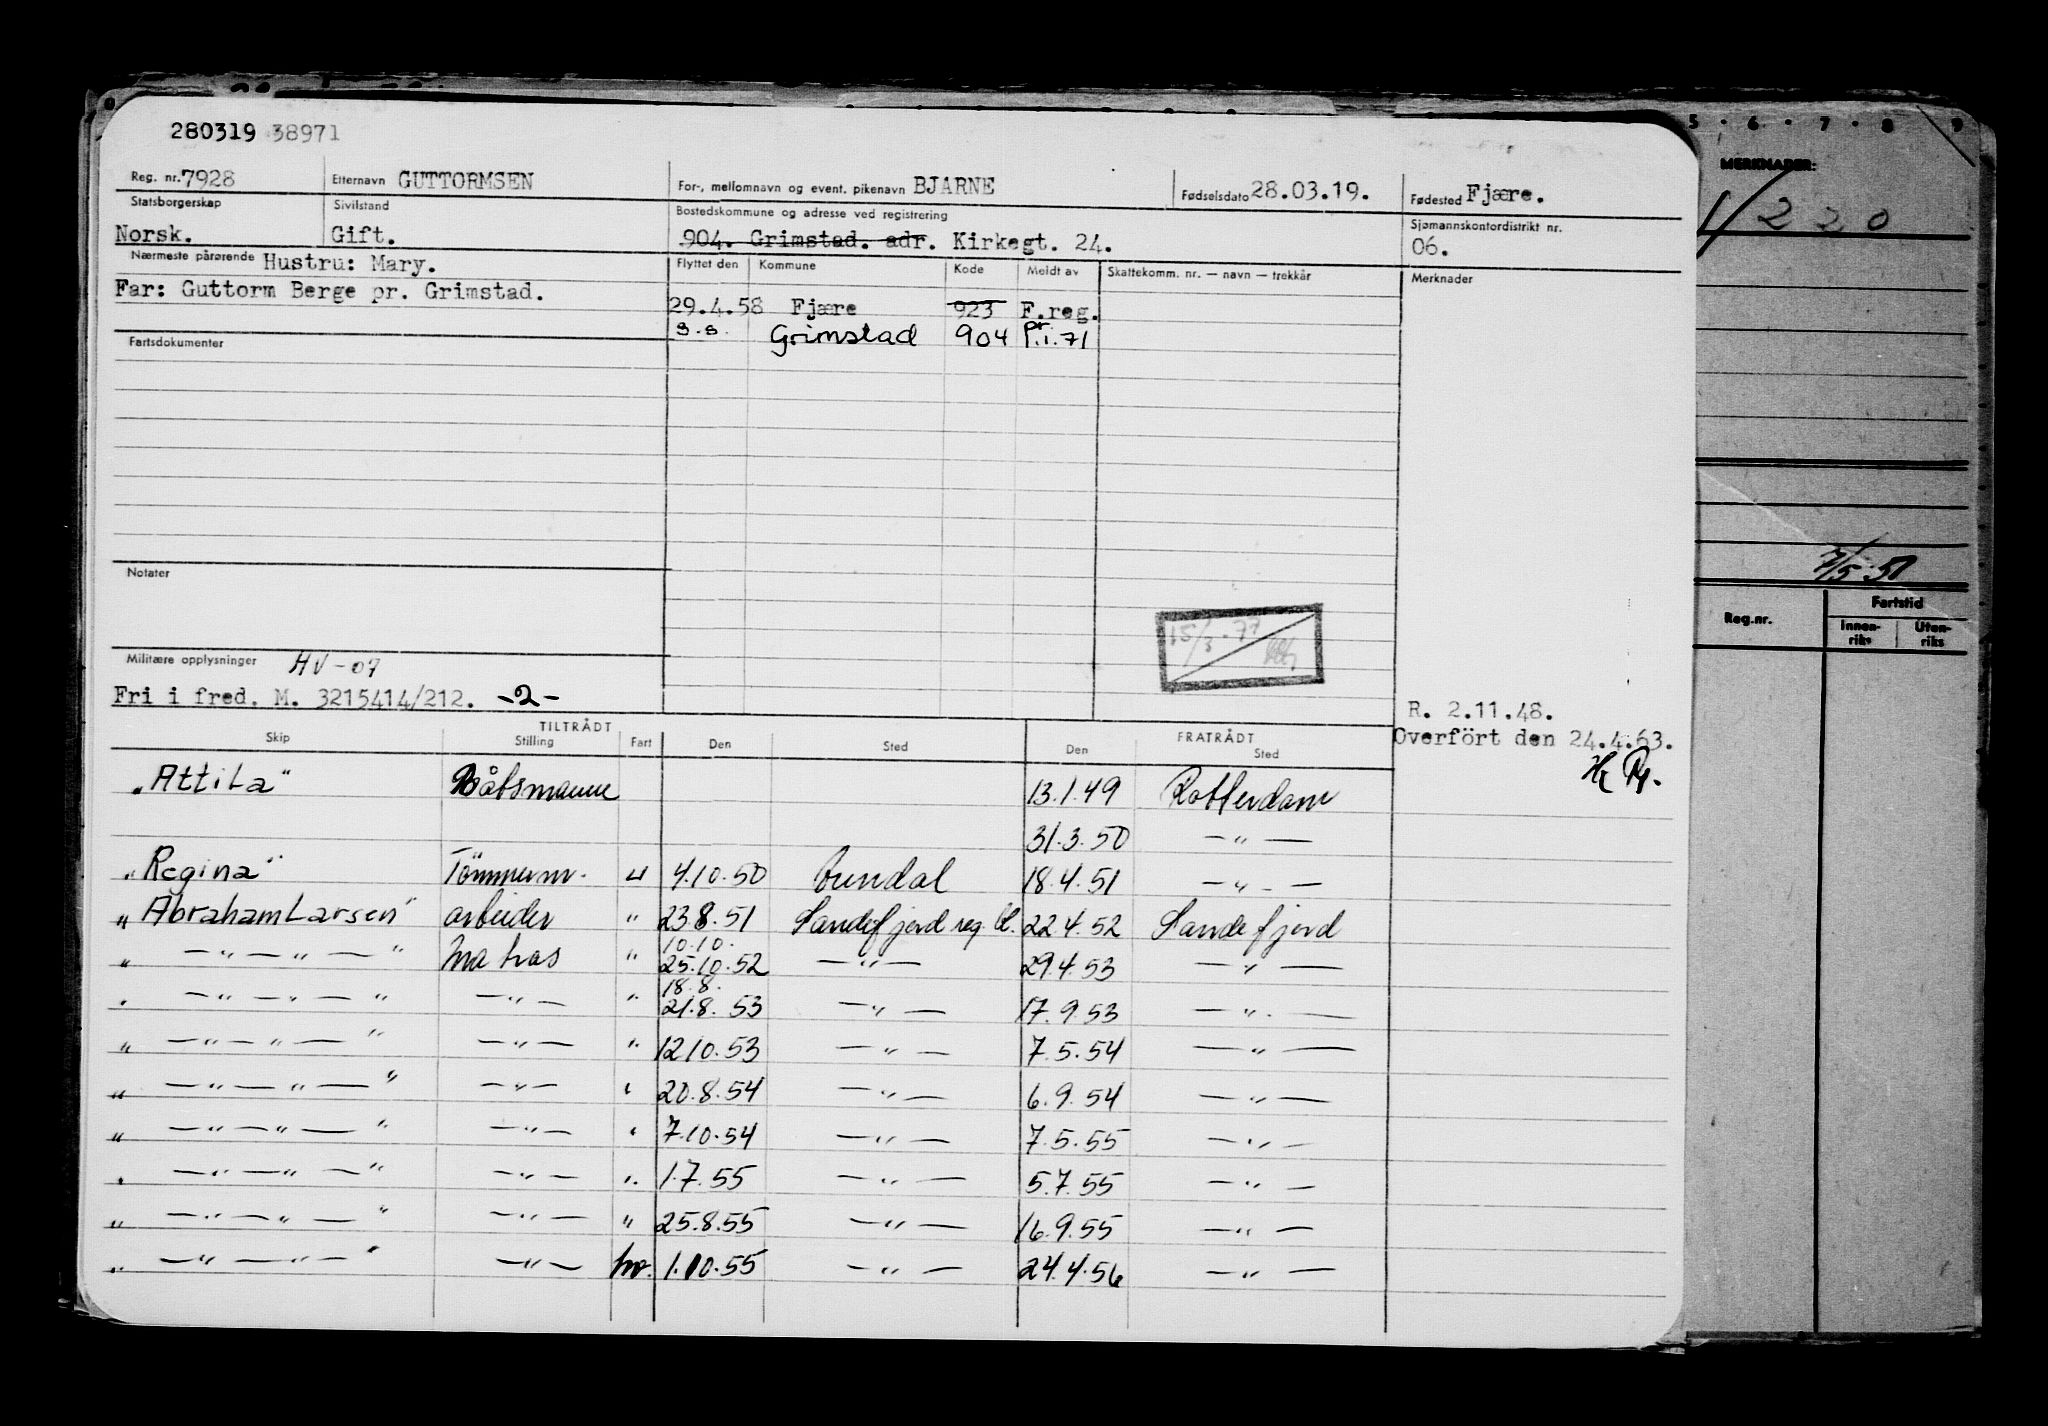 280319 38971
Reg. nr. 7928 Etternavn GUTTORMSEN For-, mellomnavn og event. pikenavn BJARNE Fødselsdato 28.03.19. Fødested Fjære.
Statsborgerskap Sivilstand Bostedskommune og adresse ved registrering Sjømannskontordistrikt nr.
Norsk. Gift. 904. Grimstad. adr. Kirkegt. 24. 06.
Nærmeste pårørende Hustru: Mary. Flyttet den Kommune Kode Meldt av Skattekomm. nr. — navn — trekkår Merknader
Far: Guttorm Berge pr. Grimstad.
29.4.58 Fjære 923 F.reg.
s.s. Grimstad 904 Pr.1.71
Fartsdokumenter
Notater
15/3.77
Militære opplysninger HV-07
Fri i fred. M. 3215414/212. -2-
R. 2.11.48.
Overført den 24.4.63.
TILTRÅDT FRATRÅDT
Skip Stilling Fart Den Sted Den Sted
"Attila" Båtsmann 13.1.49 Rotterdam
31.3.50 — " —
"Regina" Tömmerm. u 4.10.50 18.4.51 — " —
"Abraham Larsen" arbeider " 23.8.51 Sandefjord reg. bl. 22.4.52 Sandefjord
" — " — " — " Matros " 10.10. 25.10.52 — " — 29.4.53 — " —
" — " — " — " — " — " 18.8. 21.8.53 — " — 17.9.53 — " —
" — " — " — " — " — " 12.10.53 — " — 7.5.54 — " —
" — " — " — " — " — " 20.8.54 — " — 6.9.54 — " —
" — " — " — " — " — " 7.10.54 — " — 7.5.55 — " —
" — " — " — " — " — " 1.7.55 — " — 5.7.55 — " —
" — " — " — " — " — " 25.8.55 — " — 16.9.55 — " —
" — " — " — " — " — hv. 1.10.55 — " — 24.4.56 — " —
5 · 6 · 7 · 8 9
MERKNADER:
220
7/5.51
Reg.nr. Fartstid
Innenriks Utenriks